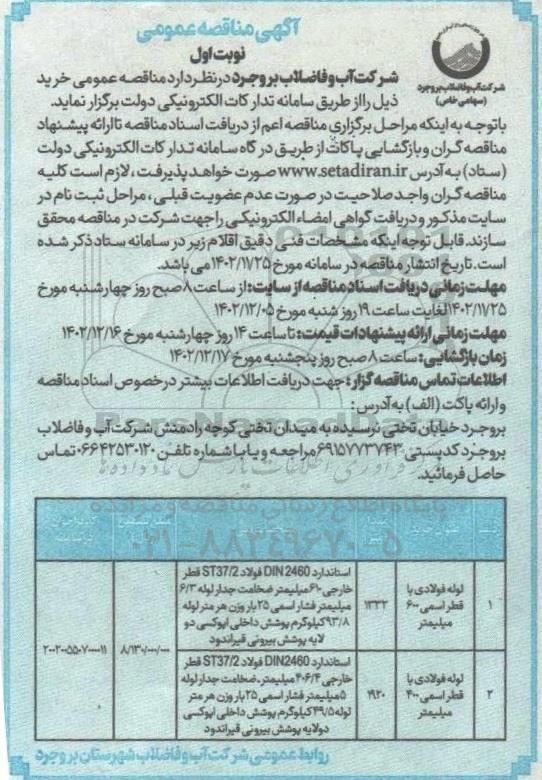 آگهی مناقصه عمومی
نوبت اول
شرکت آب و فاضلاب بروجرد
(سهامی خاص)
شرکت آب و فاضلاب بروجرد در نظر دارد مناقصه عمومی خرید
ذیل را از طریق سامانه تدارکات الکترونیکی دولت برگزار نماید.
باتوجه به اینکه مراحل برگزاری مناقصه اعم از دریافت اسناد مناقصه تا ارائه پیشنهاد
مناقصه گران و بازگشایی پاکات از طریق درگاه سامانه تدارکات الکترونیکی دولت
(ستاد) به آدرس www.setadiran.ir صورت خواهد پذیرفت، لازم است کلیه
مناقصه گران واجد صلاحیت در صورت عدم عضویت قبلی، مراحل ثبت نام در
سایت مذکور و دریافت گواهی امضاء الکترونیکی را جهت شرکت در مناقصه محقق
سازند. قابل توجه اینکه مشخصات فنی دقیق اقلام زیر در سامانه ستاد ذکر شده
است. تاریخ انتشار مناقصه در سامانه مورخ ۱۴۰۲/۱۷۲۵ می باشد.
مهلت زمانی دریافت اسناد مناقصه از سایت: از ساعت ۸ صبح روز چهارشنبه مورخ
۱۴۰۲/۱۷۲۵ لغایت ساعت ۱۹ روز شنبه مورخ ۱۴۰۲/۱۲/۰۵
مهلت زمانی ارائه پیشنهادات قیمت: تا ساعت ۱۴ روز چهارشنبه مورخ ۱۴۰۲/۱۲/۱۶
زمان بازگشایی: ساعت ۸ صبح روز پنجشنبه مورخ ۱۴۰۲/۱۲/۱۷
اطلاعات تماس مناقصه گزار: جهت دریافت اطلاعات بیشتر در خصوص اسناد مناقصه
و ارائه پاکت (الف) به آدرس:
بروجرد خیابان تختی نرسیده به میدان تختی کوچه رادمنش شرکت آب و فاضلاب
بروجرد کدپستی ۶۹۱۵۷۷۳۷۴۳ مراجعه و یا با شماره تلفن ۰۶۶۴۲۵۳۰۱۲۰ تماس
حاصل فرمائید.
پایگاه اطلاع رسانی مناقصه و مزایده
۰۲۱-۸۸۳۴۹۶۷۰-۵
۱
لوله فولادی با
قطر اسمی ۶۰۰
میلیمتر
۱۳۳۲
استاندارد DIN 2460 فولاد ST37/2 قطر
خارجی ۶۱۰ میلیمتر ضخامت جدار لوله ۶/۳
میلیمتر فشار اسمی ۲۵ بار وزن هر متر لوله
۹۳/۸ کیلوگرم پوشش داخلی اپوکسی دو
لایه پوشش بیرونی قیراندود
۸/۱۳۰/۰۰۰/۰۰۰
۲۰۰۲۰۰۵۵۰۷۰۰۰۰۱۱
۲
لوله فولادی با
قطر اسمی ۴۰۰
میلیمتر
۱۹۲۰
استاندارد DIN2460 فولاد ST37/2 قطر
خارجی ۴۰۶/۴ میلیمتر، ضخامت جدار لوله
۵ میلیمتر فشار اسمی ۲۵ بار وزن هر متر
لوله ۴۹/۵ کیلوگرم پوشش داخلی اپوکسی
دولایه پوشش بیرونی قیراندود
روابط عمومی شرکت آب و فاضلاب شهرستان بروجرد